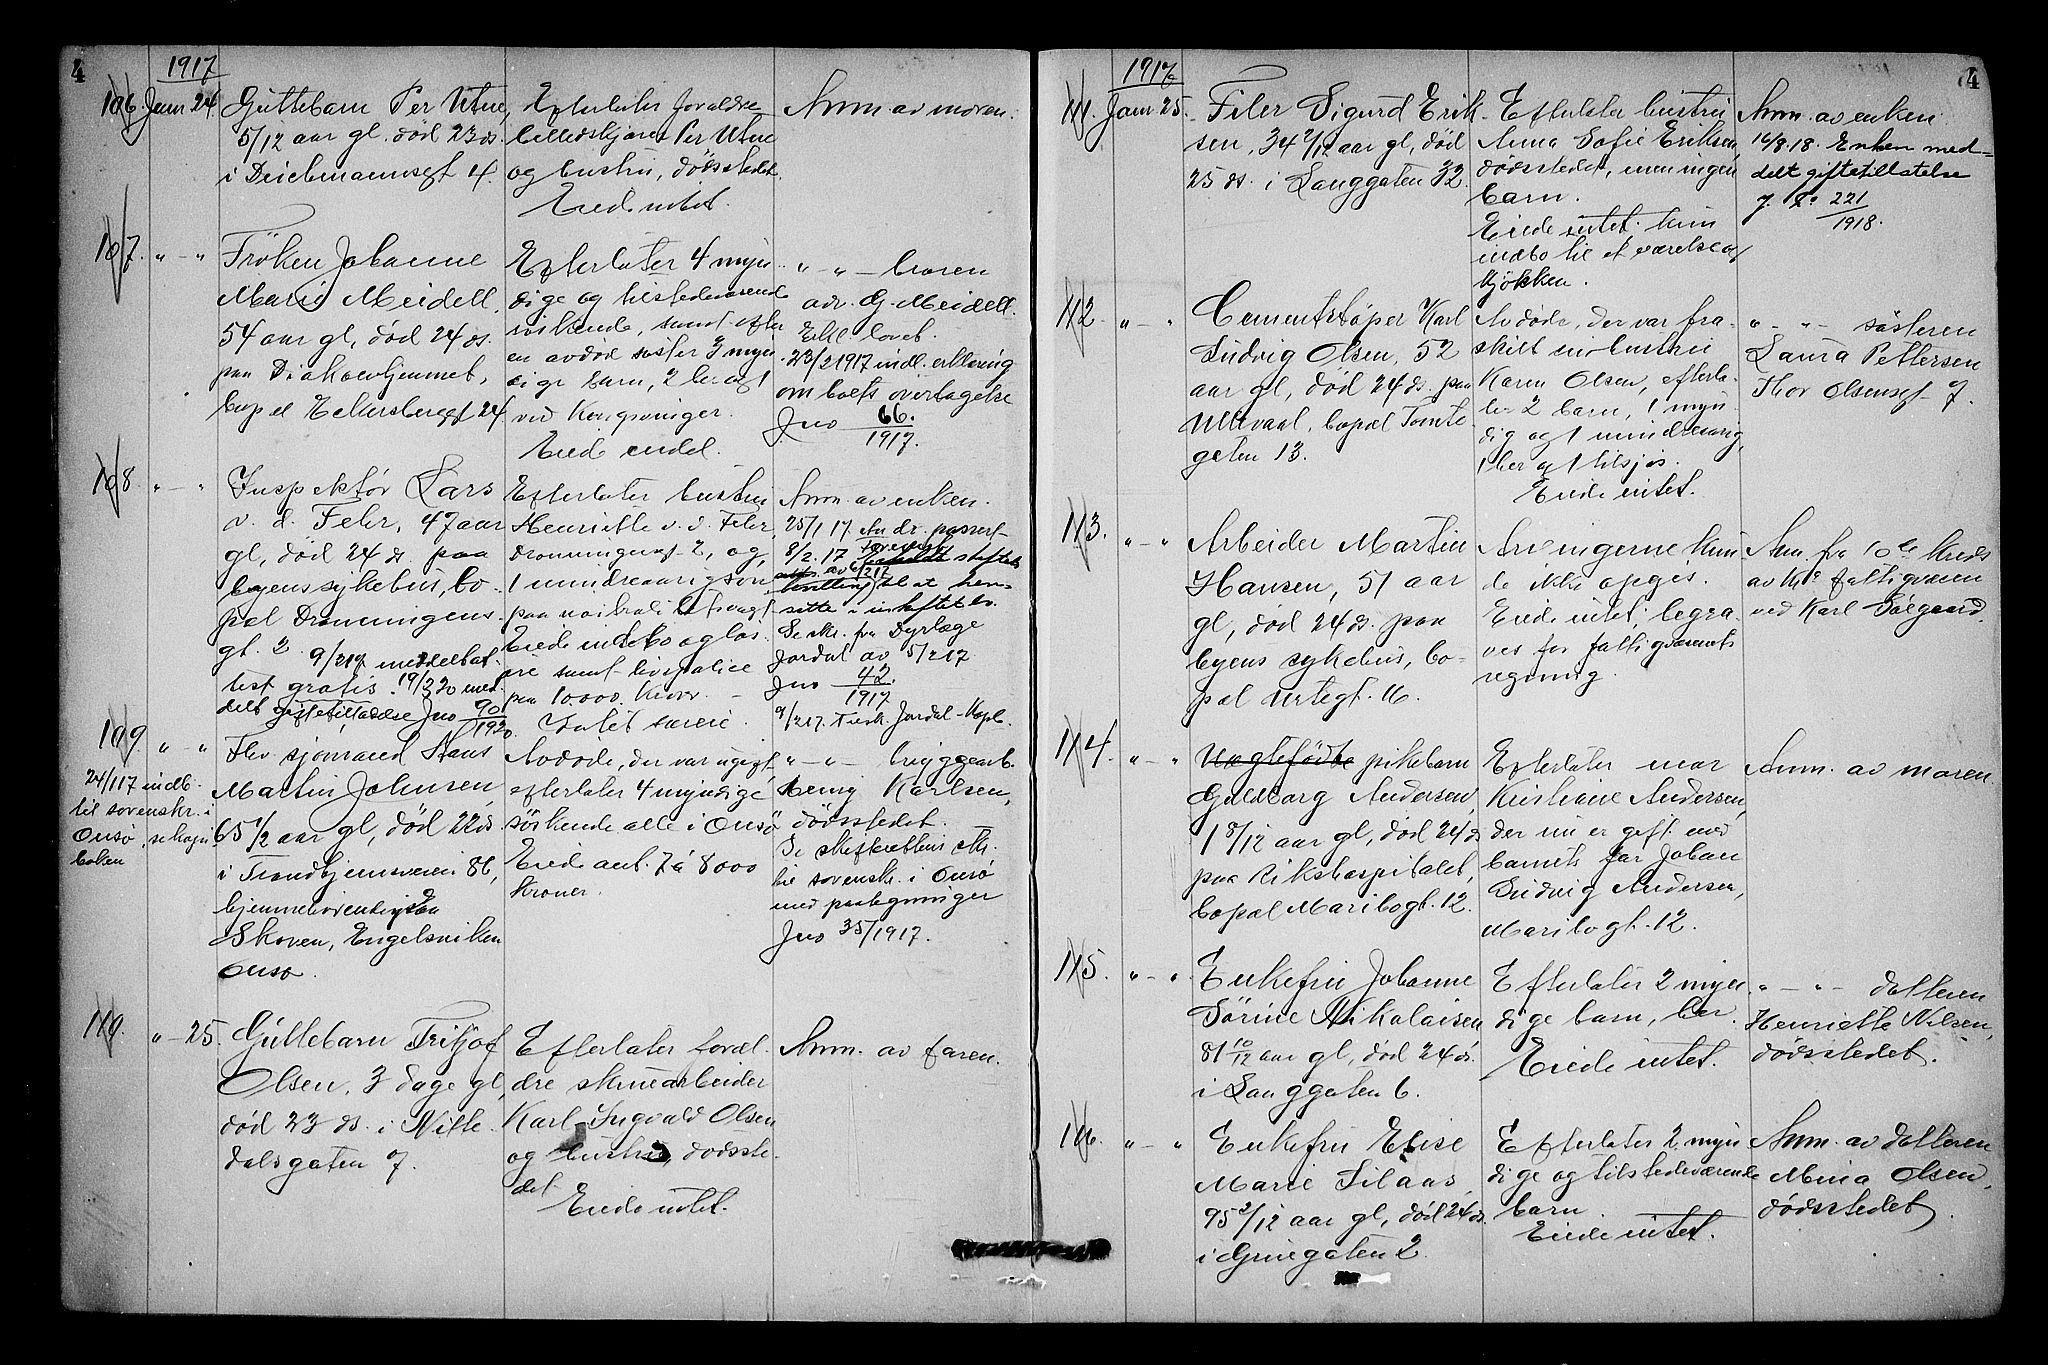 4
1917
106. Janr 24.
Guttebarn Per Utne,
5/12 aar gl. død 23 ds.
i Deichmannsgt 4.
Efterlater forældre
billedskjærer Per Utne
og hustru, dødsstedet.
Eiede intet.
Anm. av moren.
107. " — "
Fröken Johanne
Marie Meidell,
54 aar gl, død 24 ds.
paa Diakonhjemmet,
bopæl Eckersbergsgt 24.
Efterlater 4 myn-
dige og tilstedeværende
søskende, samt efter
en avdød søster 3 myn
dige barn, 2 her og 1
ved Kongsvinger.
Eiede endel.
" — " — broren
adv. G. Meidell.
Erkl. lovet.
23/2 1917 indl. erklæring
om boets overtagelse
Jno 66./1917.
108. " — "
Inspektør Lars
v. d. Fehr, 47 aar
gl, død 24 ds. paa
byens sykehus, bo-
pæl Dronningens-
gt. 2. 9/2 17 meddelt at-
test gratis. 19/3 20 med
delt giftetilladelse Jno 90/1920
Efterlater hustru
Henriette v. d. Fehr,
Dronningensgt 2, og
1 mindreaarig søn,
Eiede indbo og løs-
øre samt livspolice
paa 10.000. Kroner. —
Intet særeie.
Anm. av enken.
25/1 17. An dr. passert
8/2. 17 forevist skiftets
av 6/2 17
bevilling til at hen-
sitte i uskiftet bo.
Se skr. fra Dyrlæge
Jordal av 5/2 17
Jno 42./1917
9/2 17. Tilsk. Jordal - Kopb.
109. " — "
24/1 17 indb.
til sorenskr. i
Onsø, se kopi
boken
Fhv sjømand Hans
Martin Johnsen,
65 1/2 aar gl, død 22 ds.
i Trondhjemsveien 86,
hjemmehørende
Skoven, Engelsviken
Onsø.
Avdøde, der var ugift,
efterlater 4 myndige
søskende alle i Onsø
Eiede ant. 7 à 8000
kroner.
" — " — bryggearb.
Henry Karlsen,
dödsstedet.
Se skifterettens skr.
til sorenskr. i Onsö
med paategninger
Jno 35/1917.
110. " — 25.
Guttebarn Fritjof
Olsen, 3 dage gl,
død 23 ds. i Nitte-
dalsgaten 7.
Efterlater foræl-
dre skruearbeider
Karl Ingvald Olsen
og hustru, dødsste-
det
Eiede intet.
Anm. av faren.
4
1917
111. Janr 25.
Filer Sigurd Erik-
sen, 34 2/12 aar gl, død
25 ds. i Langgaten 32.
Efterlater hustru
Anna Sofie Eriksen,
dødsstedet, men ingen
barn.
Eiede intet. kun
indbo til et værelse og
kjøkken.
Anm. av enken
16/8 18. Enken med-
delt giftetillatelse
J. No 221/1918.
112. " — "
Cementstøper Karl
Ludvig Olsen, 52
aar gl, død 24 ds. paa
Ullevaal, bopæl Tomte-
gaten 13.
Avdøde, der var fra-
skilt sin hustru
Karen Olsen, efterla-
ter 2 barn, 1 myn-
dig og 1 mindreaarig,
1 her og 1 tilsjøs.
Eiede intet.
" — " — søsteren
Laura Pettersen
Thor Olsensgt 7.
113. " — "
Arbeider Martin
Hansen, 51 aar
gl, død 24 ds. paa
byens sykehus, bo-
pæl Urtegt. 16.
Arvingerne kun-
de ikke opgis.
Eiede intet; begra-
ves for fattigvæsenets
regning.
Anm. fra 10de kreds
av Kra fattigvæsen
ved Karl Solgaard.
114. " — "
Uægtefødte pikebarn
Guldborg Andersen,
1 8/12 aar gl, død 24 ds
paa Rikshospitalet,
bopæl Maribogt. 12.
Efterlater mor
Kristiane Andersen,
der nu er gift med
barnets far Johan
Ludvig Andersen,
Maribogt. 12.
Anm. av moren.
115. " — "
Enkefru Johanne
Sörine Nikolaisen
81 10/12 aar gl, død 24 ds.
i Langgaten 6.
Efterlater 2 myn
dige barn, her.
Eiede intet.
" — " — datteren
Henriette Nilsen,
dödsstedet.
116. " — "
Enkefru Elise
Marie Silaas,
95 2/12 aar gl, død 24 ds.
i Gruegaten 2.
Efterlater 2 myn
dige og tilstedeværende
barn.
Eiede intet.
Anm. av datteren
Mina Olsen,
dödsstedet.